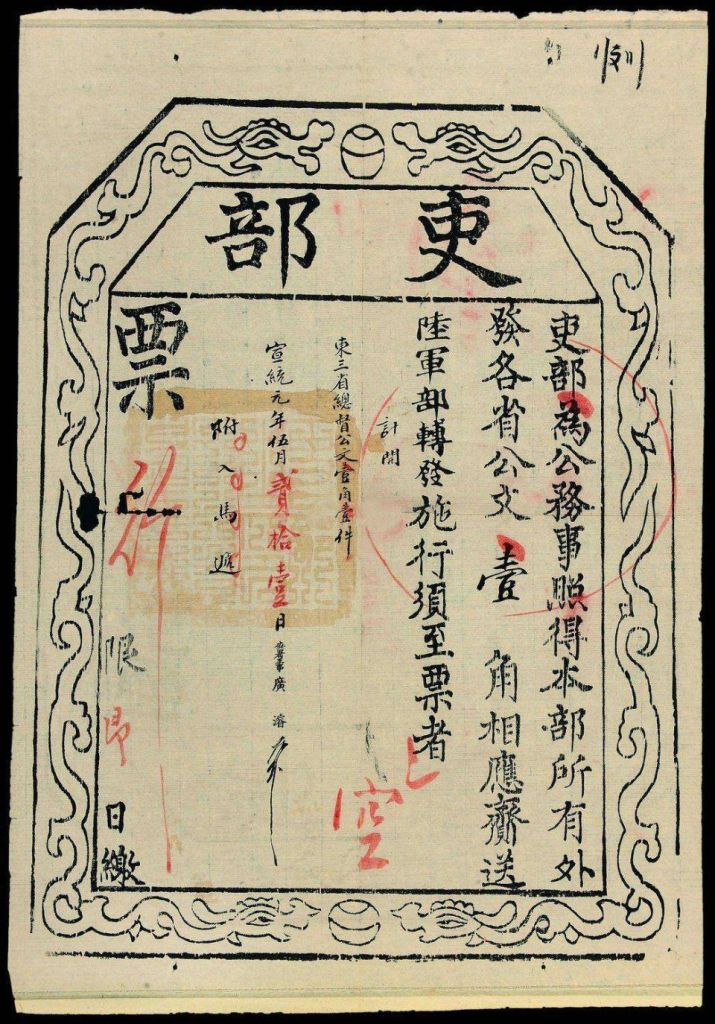 吏部
吏部為公務事照得本部所有外
發各省公文壹角相應齎送
陸軍部轉發施行須至票者
計開
東三省總督公文壹角壹件
宣統元年伍月貳拾壹日
廣濬
附入馬遞
票
行
限即日繳